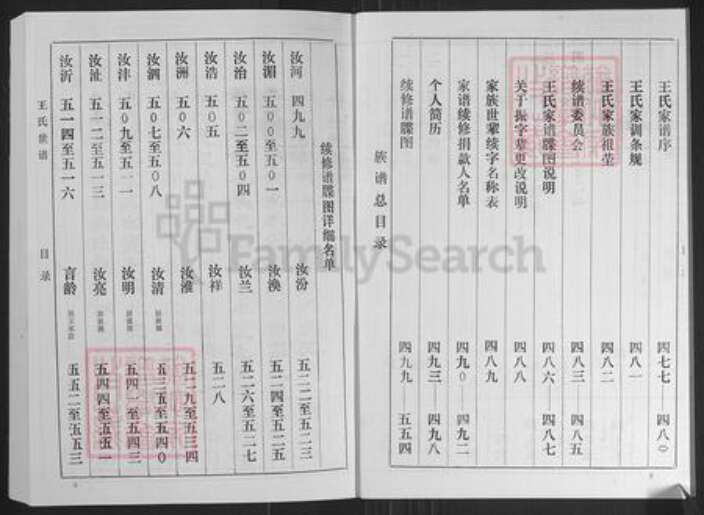 族谱总目录
王氏家谱序 四七七 四八〇
王氏家训条规 四八一
王氏家族祖茔 四八二
续谱委员会 四八三 四八五
王氏家谱牒图说明 四八六—四八七
关于振字辈更改说明 四八八
家族世辈续字名称表 四八九
家谱续修捐款人名单 四九〇 四九二
个人简历 四九三—四九八
续修谱牒图 四九九—五五四
续修谱牒图详细名单
汝河 四九九
汝湄 五〇〇至五〇一
汝治 五〇二至五〇四
汝浩 五〇五
汝洲 五〇六
汝泗 五〇七至五〇八
汝沣 五〇九至五一一
汝沚 五一二至五一三
汝沂 五一四至五一六
汝汾 五二二至五二三
汝涣 五二四至五二五
汝兰 五二六至五二七
汝祥 五二八
汝淮 五二九至五三四
汝清 五三五至五四〇
汝明 五四一至五四三
汝亮 五四四至五五一
言龄 五五二至五五三
王氏家谱
目录
FamilySearch